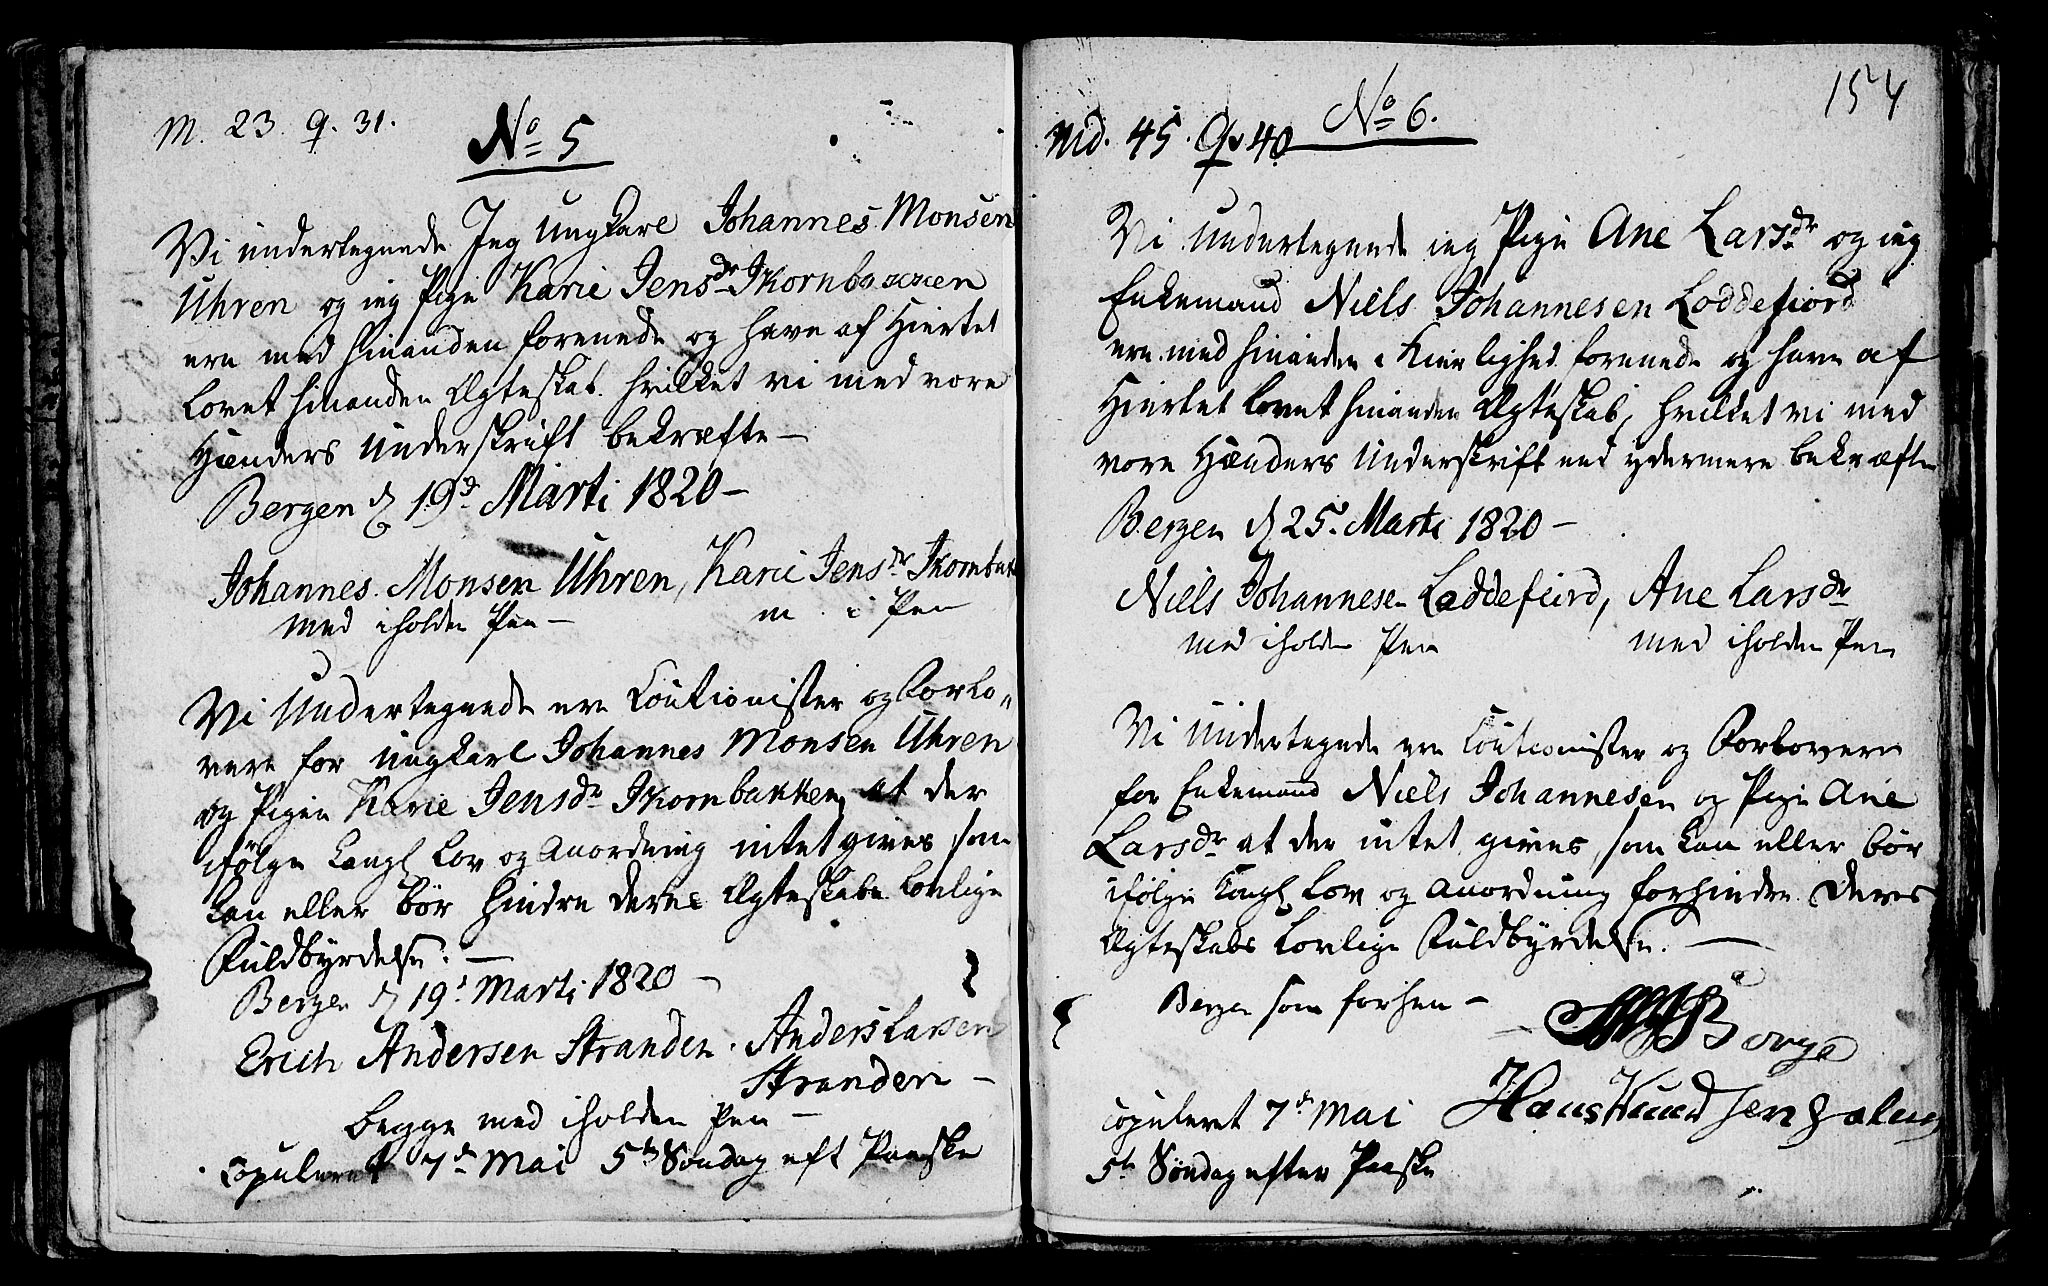 M. 23. Q. 31.
No 5
Vi undertegnede Jeg Ungkarl Johannes Monsen
Uhren og jeg Pige Karie Jensdr Skornbakken
ere med hinanden forenede og have af Hiertet
lovet hinanden Ægteskab hvilket vi med vore
Hænders Underskrift bekræfte —
Bergen d 19d Marti 1820 —
Johannes Monsen Uhren, Karie Jensdr
med iholden Pen — m i Pen
Vi Undertegnede ere Coutionister og Forlo„
vere for Ungkarl Johannes Monsen Uhren
og Pigen Karie Jensdr Skornbakken, at der
ifølge Kongl Lov og Anordning intet gives, som
kan eller bør hindre deres Ægteskabs lovlige
Fuldbyrdelse. —
Bergen d 19d Marti 1820 —
Erich Andersen Stranden. Anders Larsen
Stranden —
begge med iholden Pen —
Copuleret 7de Mai 5te Søndag eft Paaske
154
No 6.
Md. 45. Q. 40
Vi Undertegnede jeg Pige Ane Larsdr og jeg
Enkemand Niels Johannesen Loddefiord
ere med hinanden i Kierlighed forenede og have af
Hiertet lovet hinanden Ægteskab, hvilket vi med
vore Hænders Underskrift ved ydermere bekræfte
Bergen d 25. Marti 1820 —
Niels Johannesen Loddefiord, Ane Larsdr
med iholden Pen med iholden Pen
Vi Undertegnede ere Coutionister og Forlovere
for Enkemand Niels Johannesen og Pige Ane
Larsdr at der intet gives, som kan eller bør
ifølge Kongl Lov og Anordning forhindre Deres
Ægteskabs lovlige Fuldbyrdelse. —
Bergen som forhen —
Copuleret 7de Mai Hans Knudsen
5te Søndag efter Paaske